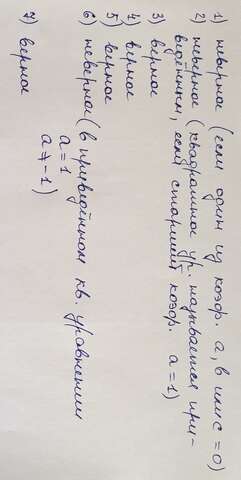 1) неверное (если один из коэф. а, в или с = 0)
2) неверное (квадратное ур. называется при-
ведённым, если старший коэф. а = 1)
3) верное
4) верное
5) верное
6) неверное (в приведённом кв. уравнении
а = 1
а ≠ -1)
7) верное